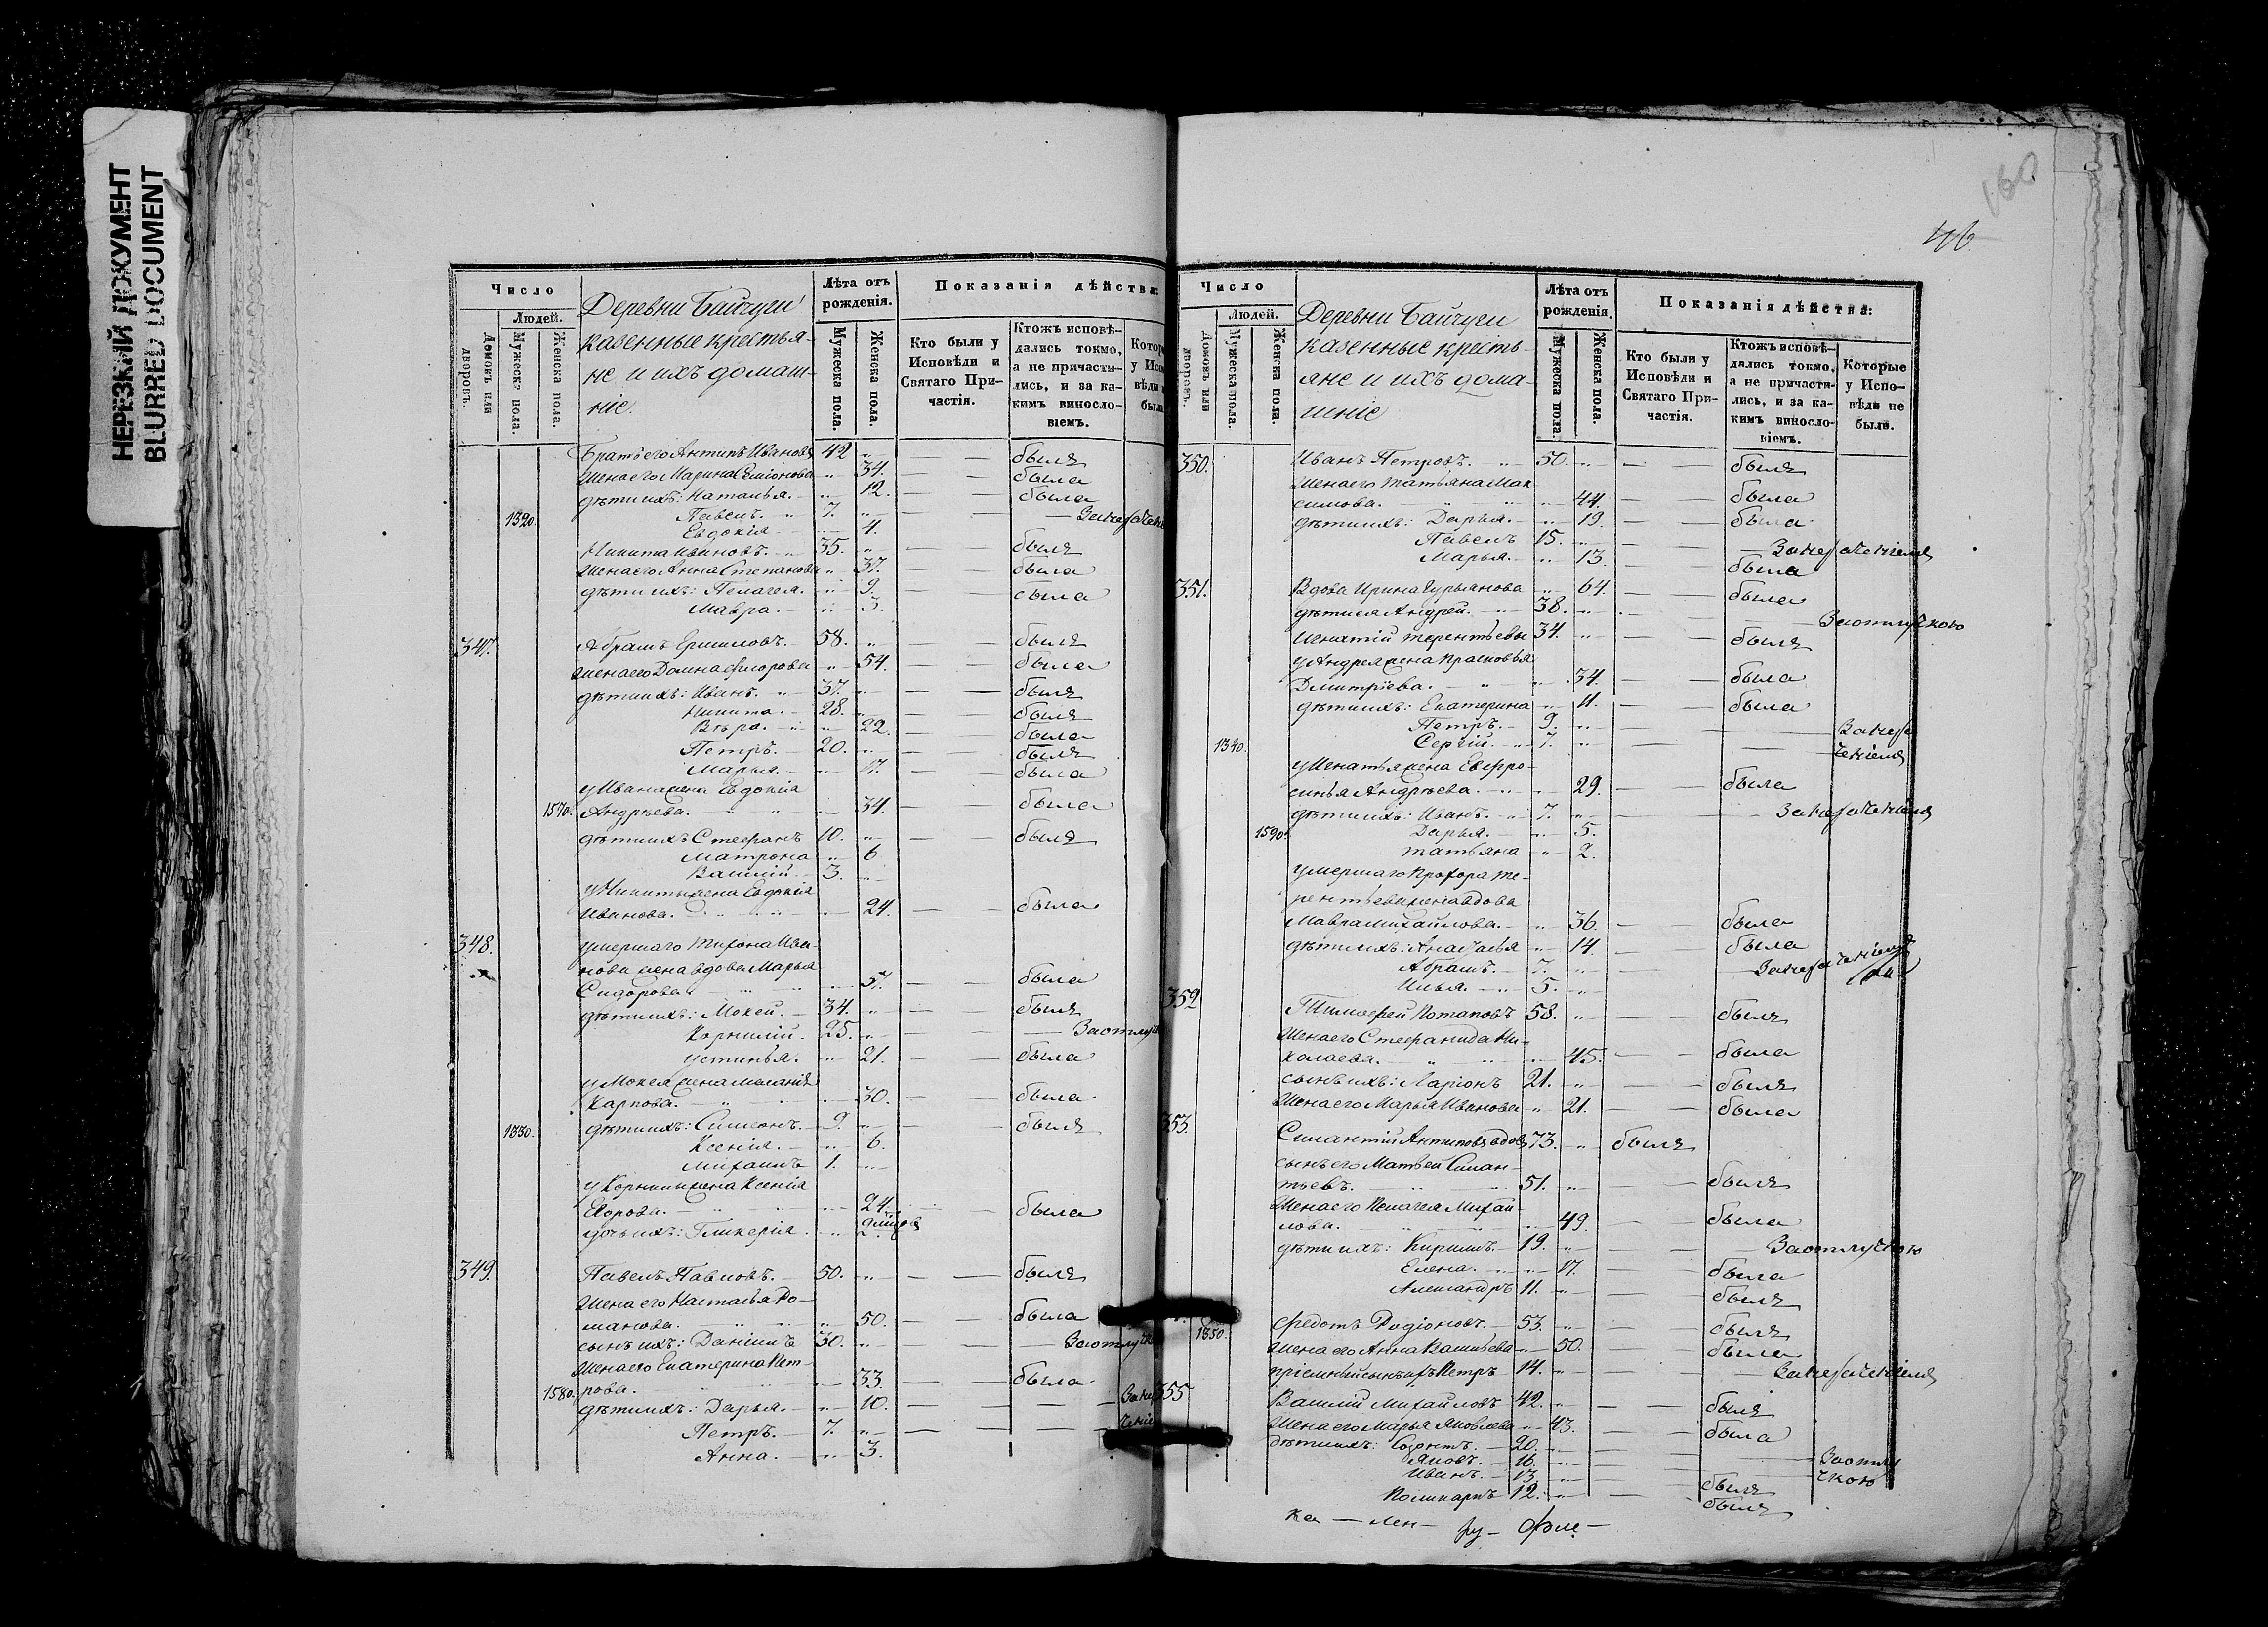 НЕРЕЗКИЙ ДОКУМЕНТ
BLURRED DOCUMENT
160
46
Число
Людей.
Домовъ или дворовъ.
Мужеска пола.
Женска пола.
Деревни Байчуги
казенные крестья-
не и ихъ домаш-
ніе.
Лѣта отъ рожденія.
Мужеска пола.
Женска пола.
Показанія дѣйства:
Кто были у Исповѣди и Святаго Причастія.
Ктожъ исповѣ-
дались токмо,
а не причасти-
лись, и за ка-
кимъ винословіемъ.
Братъ его Антипъ Ивановъ 42 былъ
Жена его Марина Семіонова 34. была
дѣти ихъ: Наталья. 12. была
1320. Павелъ. 7.
Евдокія 4.
Никита Ивановъ. 35. былъ
Жена его Анна Степанова 37. была
дѣти ихъ: Пелагея. 9. была
Мавра. 3.
347. Абрамъ Ермиловъ. 58. былъ
Жена его Домна Флорова 54. была
дѣти ихъ: Иванъ. 37. былъ
Никита. 28. былъ
Вѣра. 22. была
Петръ. 20. былъ
Марья. 17. была
у Ивана жена Евдокія
1570. Андрѣева. 34. была
дѣти ихъ Стефанъ 10. былъ
Матрона 6
Василій. 3.
у Никиты жена Евдокія
Иванова. 24. была
348. умершаго Тихона Ива-
нова жена вдова Марья
Сидорова 57. была
дѣти ихъ: Мокей. 34. былъ
Корнилій. 25. За отлуч
Устинья. 21. была
у Мокея жена Меланія
Карпова. 30. была
1330. дѣти ихъ: Симеонъ. 9. былъ
Ксенія. 6.
Михаилъ 1.
у Корнилы жена Ксенія
Егорова. 24. была
дочь ихъ: Гликерія. 2.
349. Павелъ Павловъ. 50. былъ
Жена его Настасья Ро-
манова. 50. была
сынъ ихъ: Даніилъ 30. За отлуч
Жена его Екатерина Пет-
1580. рова. 33. была
дѣти ихъ: Дарья. 10.
Петръ. 7.
Анна. 3.
Число
Людей.
Домовъ или дворовъ.
Мужеска пола.
Женска пола.
Деревни Байчуги
казенные кресть-
яне и ихъ дома-
шніе
Лѣта отъ рожденія.
Мужеска пола.
Женска пола.
Показанія дѣйства:
Кто были у Исповѣди и Святаго Причастія.
Ктожъ исповѣ-
дались токмо,
а не причасти-
лись, и за ка-
кимъ винословіемъ.
Которые у Исповѣди не были.
350. Иванъ Петровъ. 50. былъ
Жена его Татьяна Мак
симова. 44. была
дѣти ихъ: Дарья. 19. была
Павелъ 15. За нераченіемъ
Марья. 13. была
351. Вдова Ирина Гурьянова 64. была
дѣти ея Андрей. 38. За отлучкою
Игнатій Терентьевы 34. былъ
у Андрея жена Прасковья
Дмитріева. 34. была
дѣти ихъ: Екатерина 11. была
Петръ. 9. За нера
1340. Сергій. 7. ченіемъ
у Игнатья жена Евфро-
синья Андрѣева. 29. была
дѣти ихъ: Иванъ. 7. За нераченіемъ
1590. Дарья. 5.
Татьяна 2.
умершаго Прохора Те-
рентьева жена вдова
Мавра Михайлова. 36. была
дѣти ихъ: 14. была
Абрамъ. 7.
Илья. 5.
352 Тимофей Потаповъ 58. былъ
Жена его Стефанида Ни-
колаева. 45. была
сынъ ихъ: Ларіонъ 21. былъ
Жена его Марья Иванова 21. была
353. Силантій Антиповъ вдовъ 73. былъ
сынъ его Матвей Силан-
тьевъ. 51. былъ
Жена его Пелагея Михай
лова. 49. была
дѣти ихъ: Кирилъ. 19. За отлучкою
Елена. 17. была
Александръ 11. былъ
1350. Федотъ Родіоновъ. 53. былъ
Жена его Анна Васильева 50. была
пріемный сынъ ихъ Петръ 14. За нераченіемъ
355 Василій Михайловъ 42. былъ
Жена его Марья Яковлева 43. была
дѣти ихъ: 20. За отлу
Яковъ. 16. чкою
Иванъ. 13. былъ
Поликарпъ 12. былъ